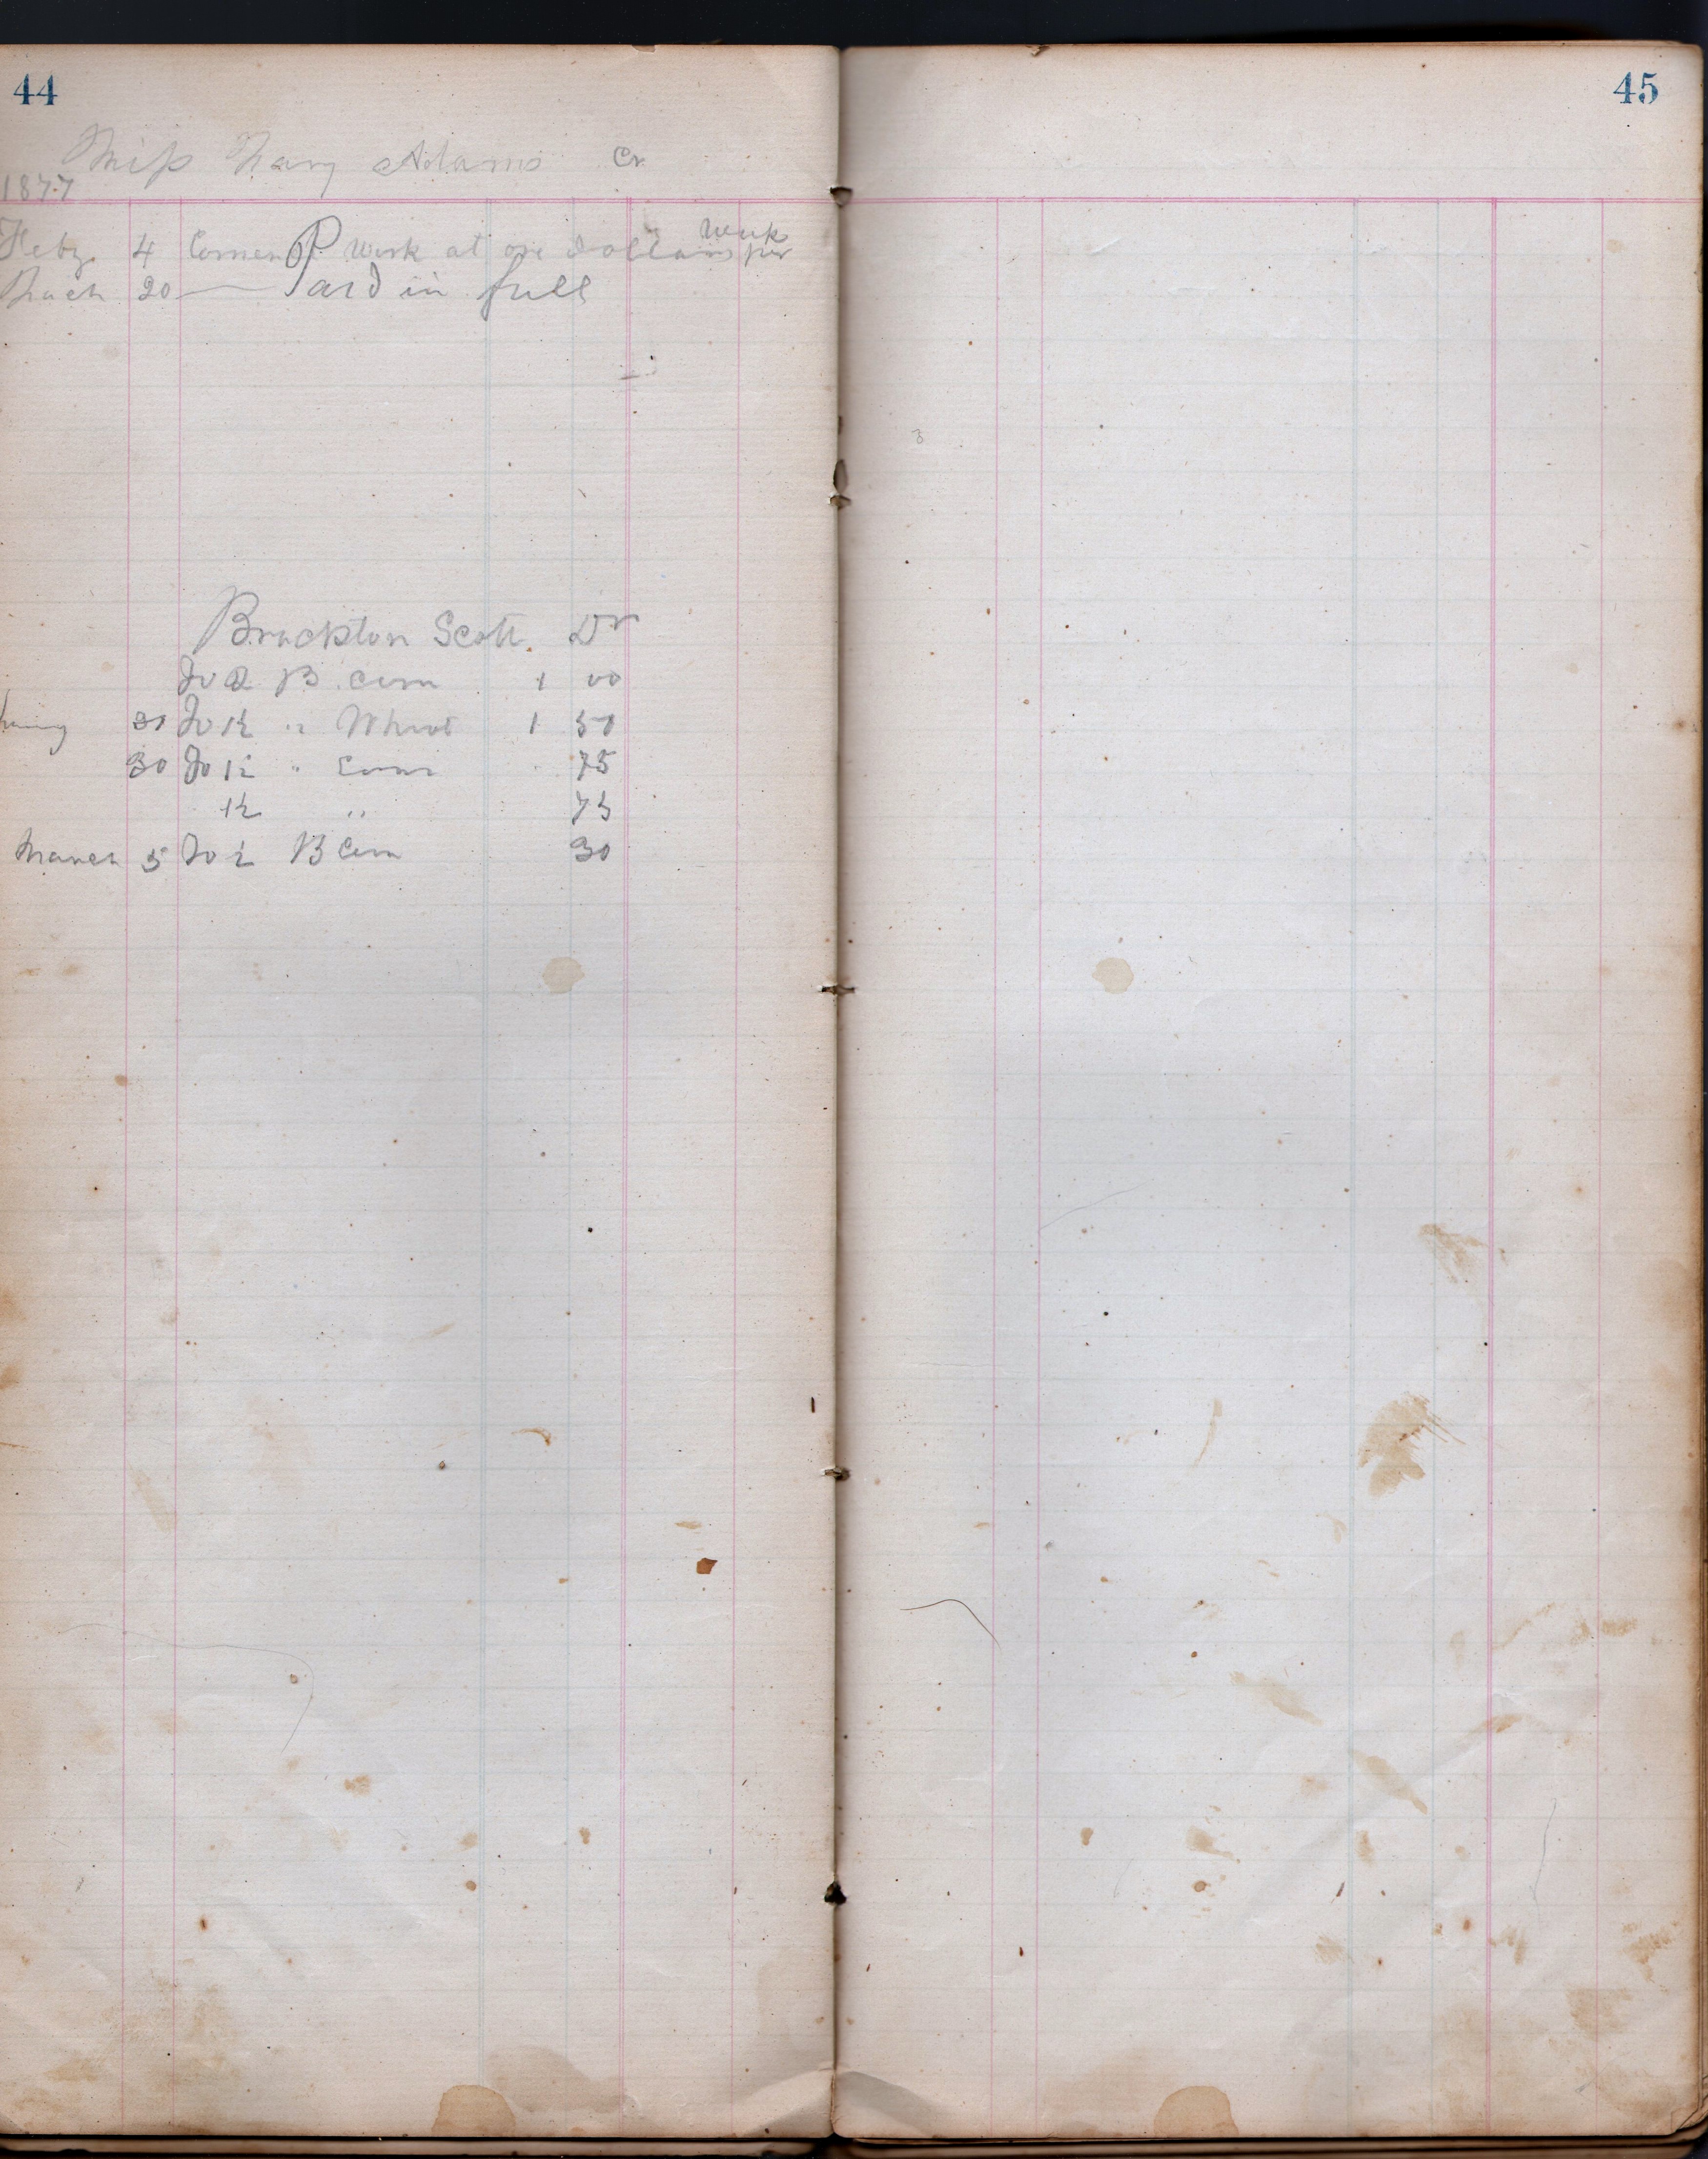 44
45
Miss Mary Adams Cr
1877
Feby 4 Comen work at one dollars per week
March 20 — Paid in full
Brackton Scott Dr
To 2 B. corn 1 00
30 To 1½ " Wheat 1 50
30 To 1½ " Corn 75
1½ " 75
March 5 To ½ B Corn 30